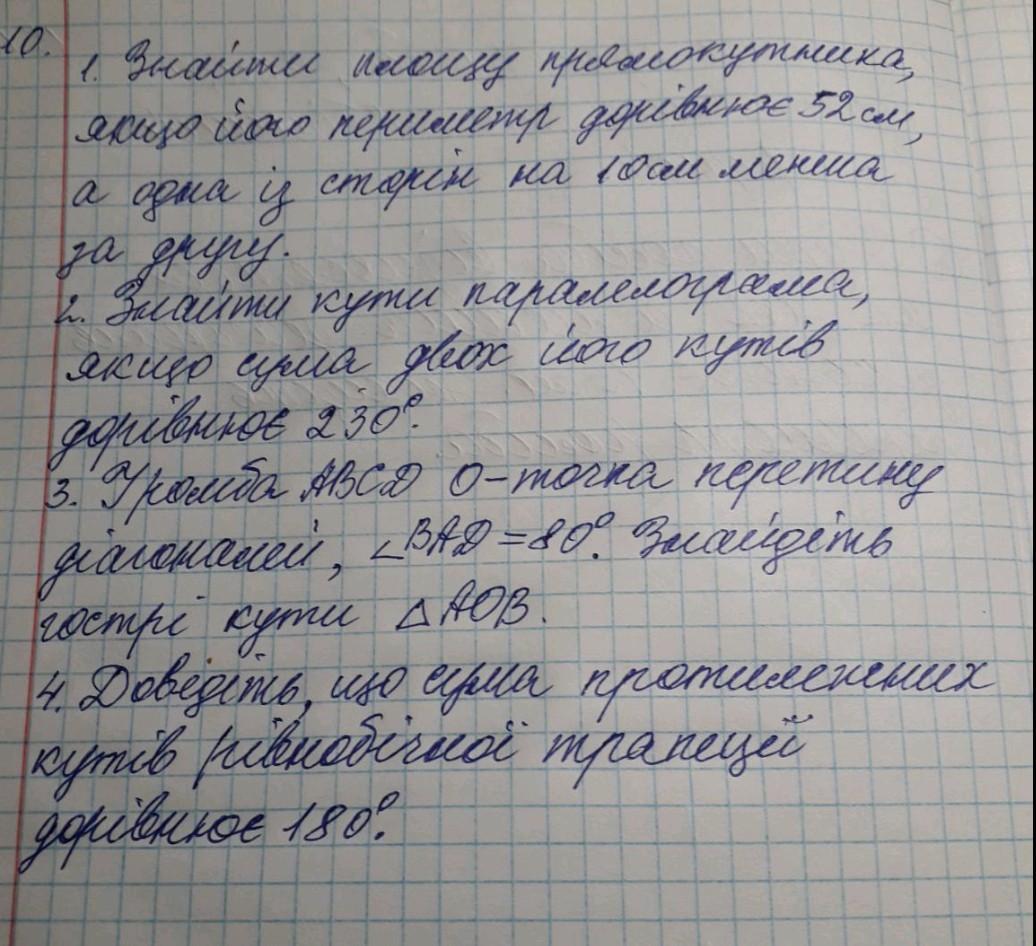 10.
1. Знайти площу прямокутника,
якщо його периметр дорівнює 52 см,
а одна із сторін на 10 см менша
за другу.
2. Знайти кути паралелограма,
якщо сума двох його кутів
дорівнює 230°.
3. У ромба ABCD О-точка перетину
діагоналей, ∠BAD = 80°. Знайдіть
гострі кути △AOB.
4. Доведіть, що сума протилежних
кутів рівнобічної трапеції
дорівнює 180°.